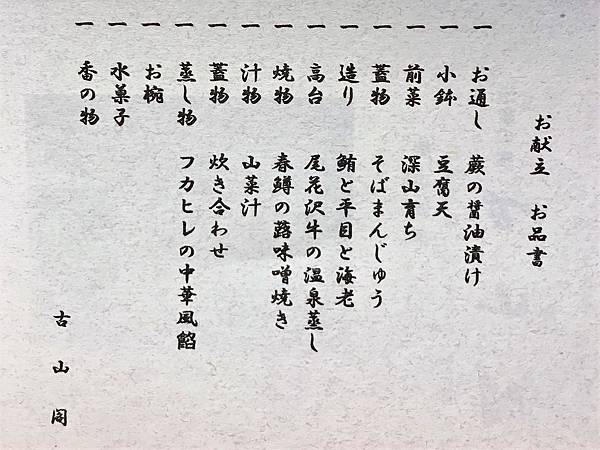 お献立 お品書
一 お通し 蕨の醤油漬け
一 小鉢 豆腐天
一 前菜 深山育ち
一 蓋物 そばまんじゅう
一 造り 鮪と平目と海老
一 高台 尾花沢牛の温泉蒸し
一 焼物 春鱒の蕗味噌焼き
一 汁物 山菜汁
一 蓋物 炊き合わせ
一 蒸し物 フカヒレの中華風餡
一 お椀
一 水菓子
一 香の物
古山閣